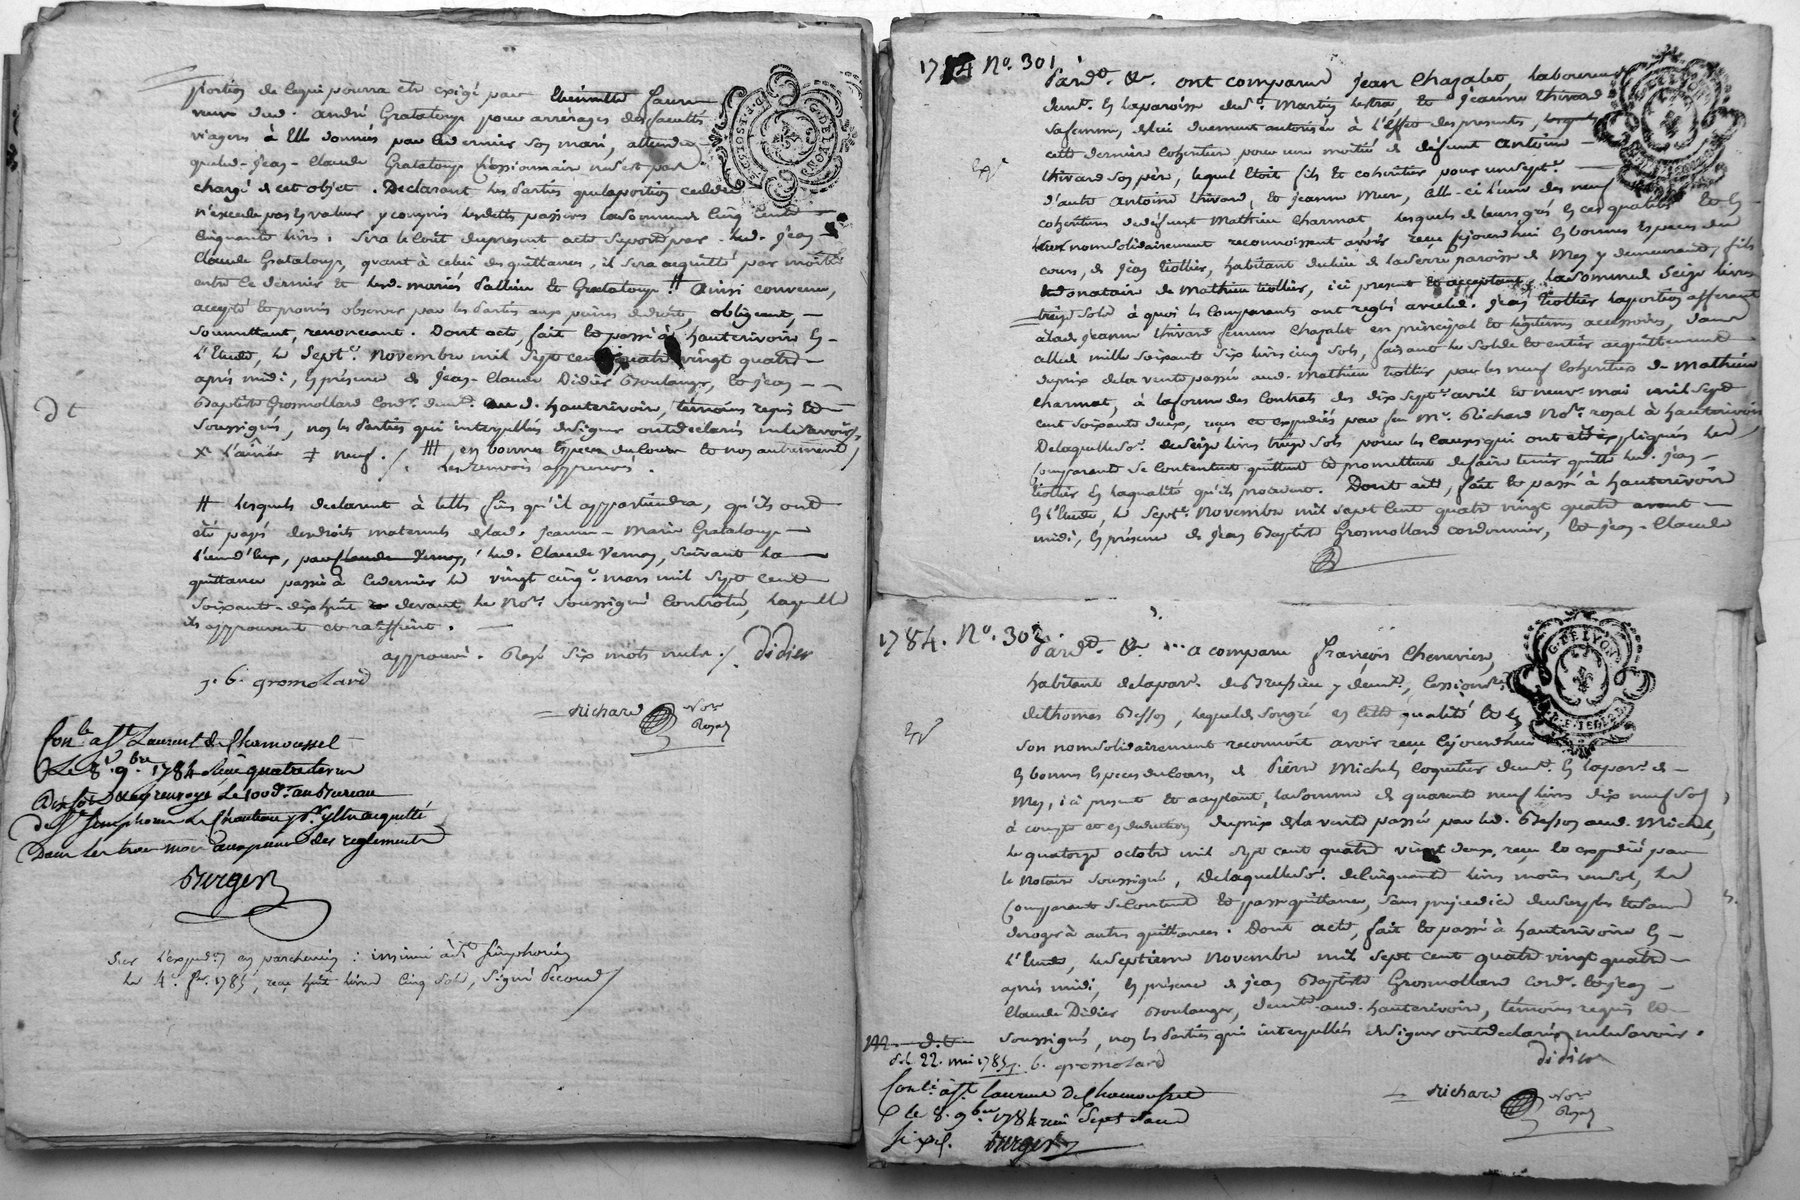 portion de ce qui pourra etre exigé par faure
veuve dud. andré Grataloup pour arrérages des
viagers à Elle donnés par led. dernier son mari, attendu
que led. jean-Claude Grataloup Cessionnaire n'est pas
chargé de cet objet. Declarant les parties que la portion cedée
n'excede pas en valeur, y compris les dettes passives la somme de Cinq Cent
Cinquante livres. Sera le Cout du present acte supporté par led. jean
Claude Grataloup, quant à celui des quittances, il sera acquitté par moitié
entre ce dernier et les d. mariés et Grataloup. # Ainsi convenu,
accepté et promis observer par les parties aux peines de droit, obligeant,
soumettant, renonceant. Dont acte, fait et passé à hauterivoire En
l'Etude, le sept. novembre mil sept cent quatre vingt quatre
après midi, En présence de jean-Claude Didier Boulanger, et jean
Baptiste Grosmollard Cord. dem. aud. hauterivoire, témoins requis et
soussignés, non les parties qui interpellées de signer ont declaré ne le savoir,
X l'ainée ‡ neuf. /. en bonnes Especes de Cour et non autrement
les renvois approuvés.
# lesquels declarent à telles fins qu'il appartiendra, qu'ils ont
été payés des droits maternels de lad. jeanne-Marie Grataloup
l'une d'eux, par Claude Vernay, led. Claude Vernay, suivant la
quittance passée à ce dernier le vingt cinq. mars mil sept cent
soixante-dix huit devant le No. soussigné Controlée, laquelle
ils approuvent et ratiffient.
approuvé. Rayé six mots nuls. /. didier
j. b. gromolard
Richard Not. Royal
Con.le à St. Laurent de Chamousset
Le 8. 9bre 1784 Reçu quatre livres
dix sols renvoyé Le 100.d au Bureau
de St. Simphorien Le Chateau p.r y Etre acquitté
Dans les trois mois aux peines des reglements
Burger
Sur l'expéd.on en parchemin : insinué à St. Simphorien
le 4. fer. 1785, reçu huit livres Cinq Sols, Signé Second /
dt
1784 No. 301.
Pard.t &c. ont comparu jean Chazalet, laboureur
dem.t En la paroisse de St. Martin lestra, et jeanne thivard
sa femme, de lui duement autorisée à l'effet des presentes,
cette derniere Coheritiere pour une moitié de défunt Antoine
thivard son père, lequel Etoit fils et coheritier pour un sept.
d'autre Antoine thivard, et jeanne Mure, Elle-ci l'une des neuf
coheritiers de défunt Mathieu Charmat, lesquels de leurs grés En ces qualités et En
leurs noms solidairement reconnoissent avoir reçu cejourd'hui En bonnes Especes du
cours, de jean tiollier, habitant du lieu de laserre paroisse de Mey y demeurant, fils
et donataire de Mathieu tiollier, ici present et acceptant, la somme de seize livres
treize sols à quoi les Comparants ont reglés avec led. jean tiollier la portion afferant
à lad. jeanne thivard femme Chazalet en principal et légitimes accessoires, dans
celle de mille soixante six livres cinq sols, faisant le solde et entier acquittement
du prix de la vente passée aud. Mathieu tiollier par les neuf Coheritiers de Mathieu
Charmat, à la forme des Contrats des dix sept. avril et neuf. mai mil sept
cent soixante deux, reçus et expediés par feu M.e Richard No.re royal à hauterivoire
De laquelle So. de seize livres treize sols pour les causes qui ont été expliquées les
Comparants se contentent quittent et promettent de faire tenir quitte led. jean
tiollier En la qualité qu'ils procedent. Dont acte, fait et passé à hauterivoire
En l'Etude, le sept. Novembre mil sept Cent quatre vingt quatre avant
midi, En présence de jean Baptiste Grosmollard cordonnier, et jean-Claude
1784. No. 302.
Pard.t &c. a comparu françois Chenevier,
habitant de la par. de Brussieu y dem.t, Cession.re
de thomas Besson, lequel de son gré en cette qualité et En
son nom solidairement reconnoit avoir reçu cejourd'hui
En bonnes Especes de Cours, de Pierre Michel Coquetier dem.t En la par. de
Mey, ici present et acceptant, la somme de quarente neuf livres dix neuf sols
à compte et en deduction du prix de la vente passée par led. Besson aud. Michel,
le quatorze octobre mil sept cent quatre vingt deux, reçue et expediée par
le Notaire soussigné, De laquelle So. de Cinquante livres moins un sol, le
Comparant se contente et passe quittance, sans prejudice du surplus et sans
deroger à autres quittances. Dont acte, fait et passé à hauterivoire En
l'Etude, le septieme Novembre mil sept cent quatre vingt quatre
après midi, En présence de jean Baptiste Grosmollard Cord. et jean
Claude Didier Boulanger, dem.t aud. hauterivoire, témoins requis et
soussignés, non les parties qui interpellées de signer ont declaré ne le savoir.
del. 22. mai 1785 j. b. gromolard didier
Richard Not. Royal
Con.lé à St. Laurent de Chamousset
Le 8. 9bre 1784 reçu sept sous
six d. Burger